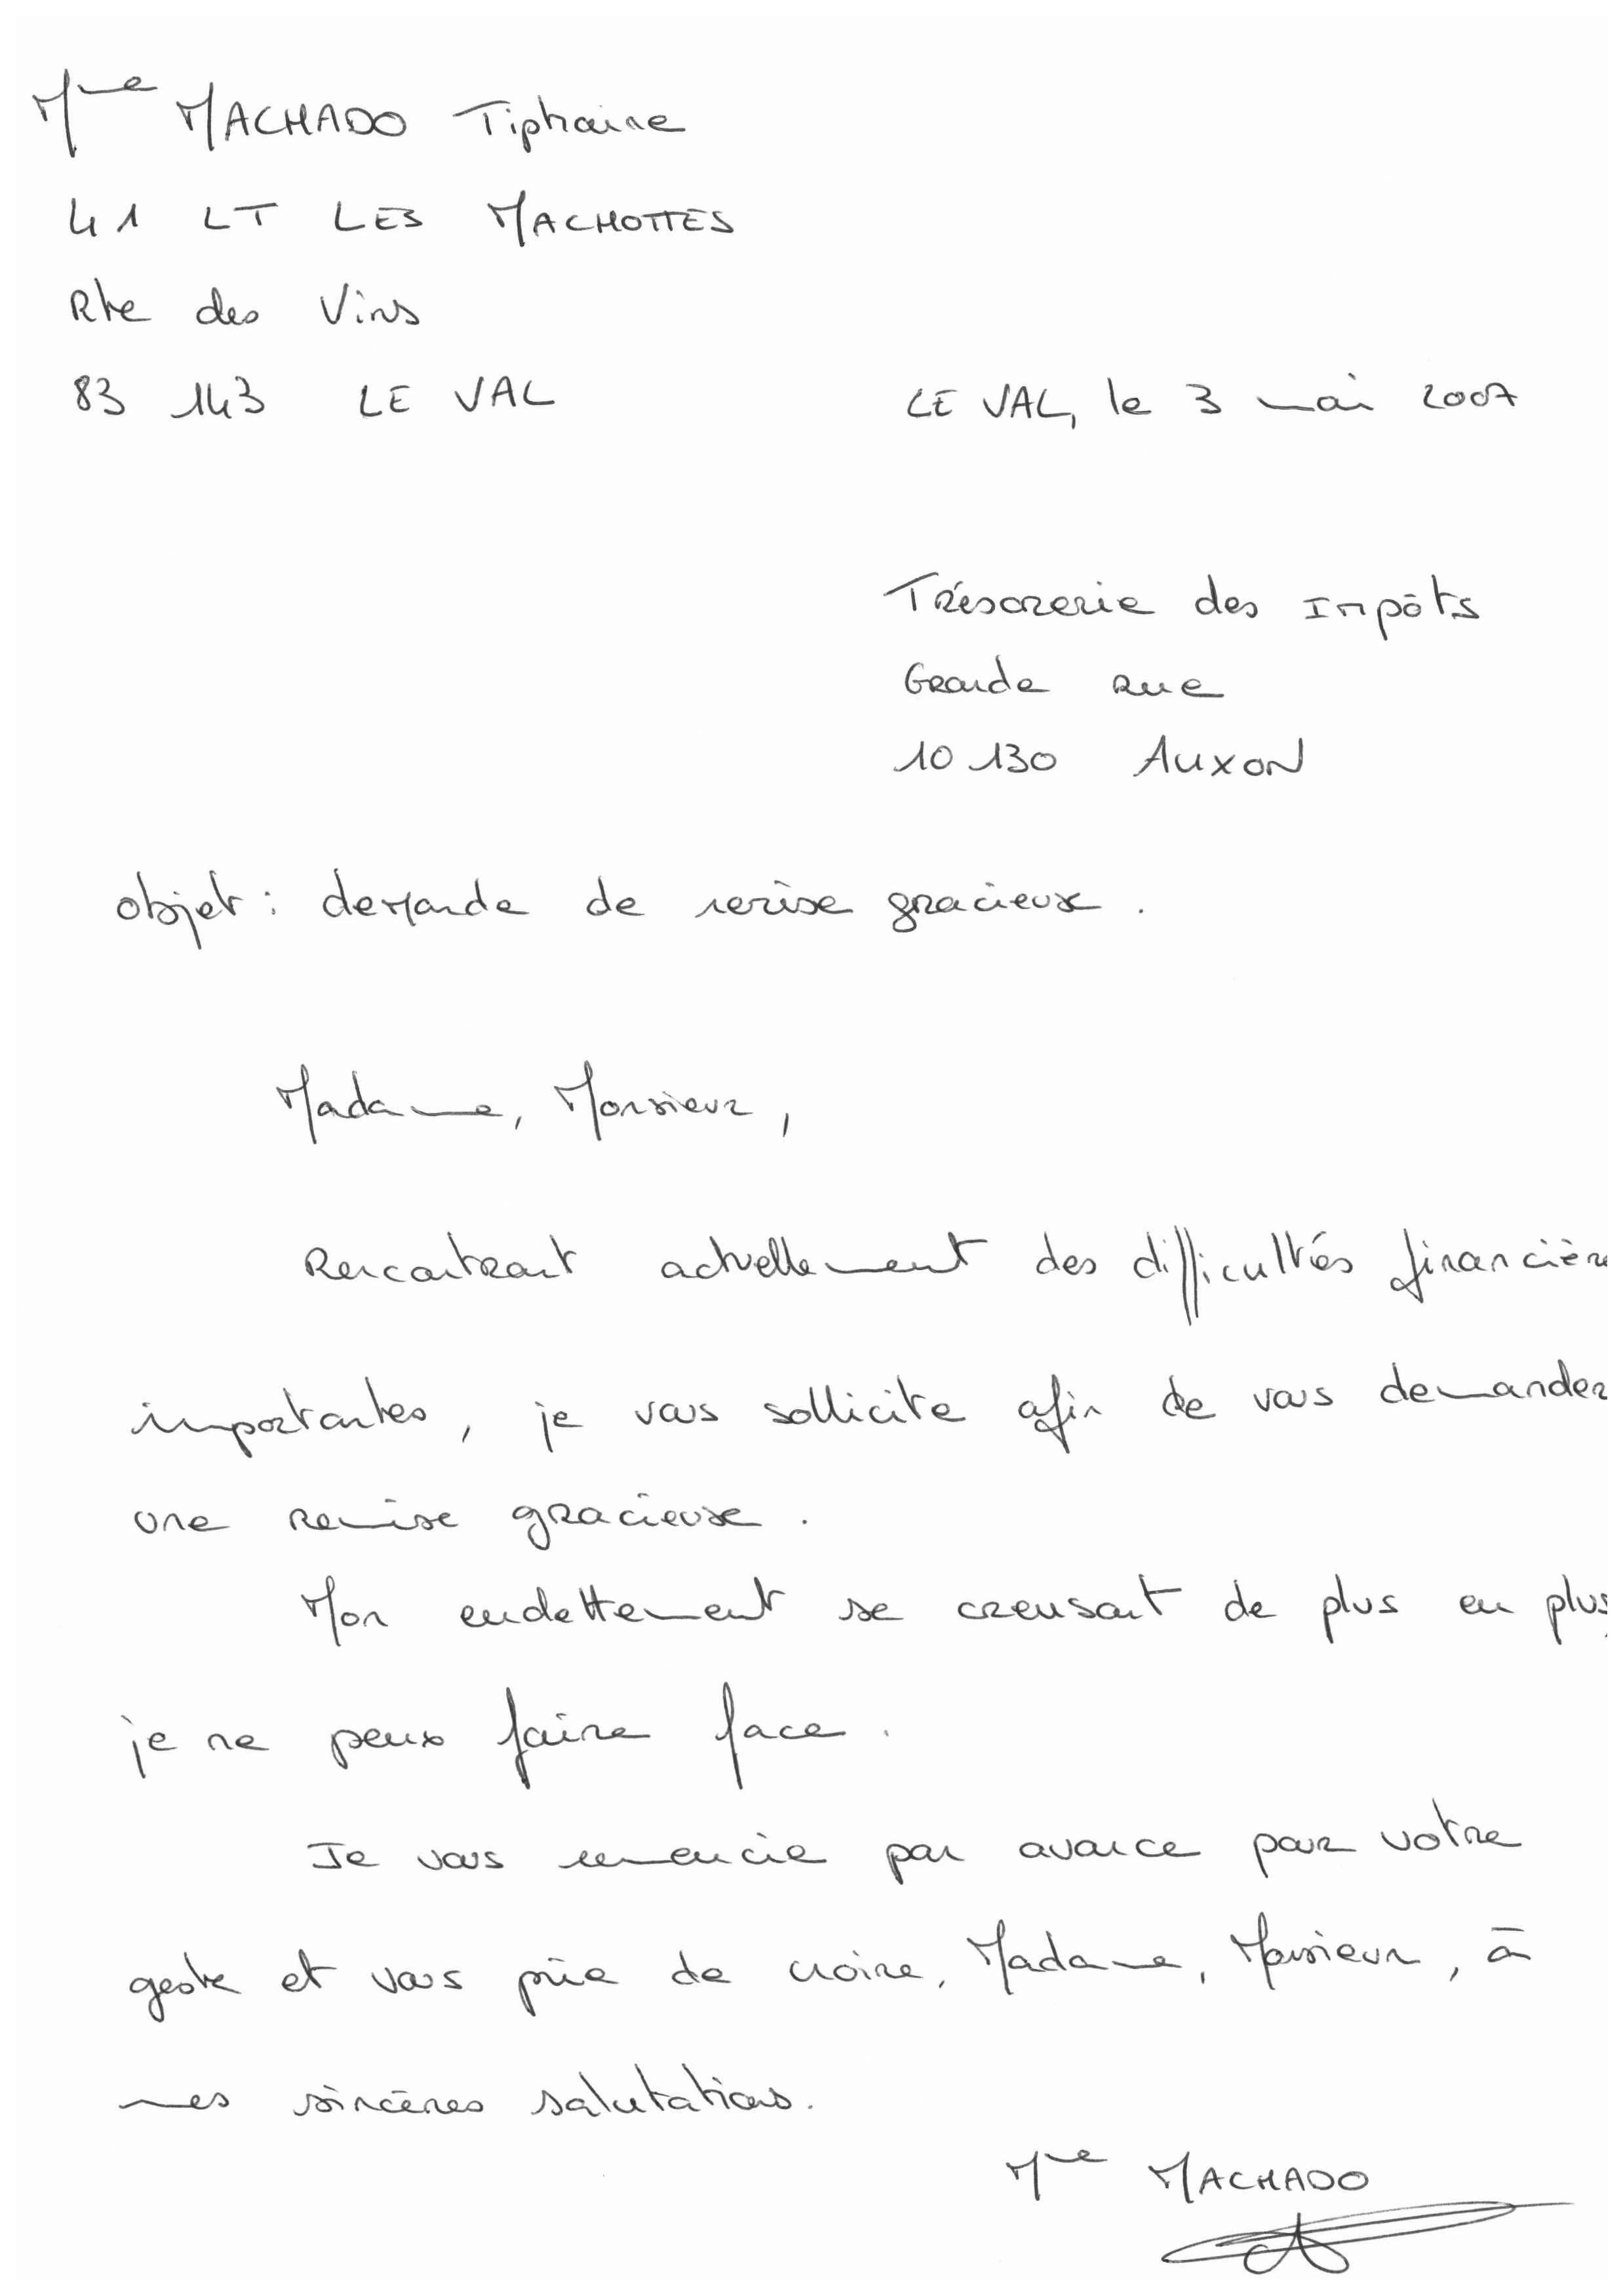 Mme MACHADO Tiphaine
41 LT LES MACHOTTES
Rte des Vins
83 143 LE VAL
LE VAL, le 3 mai 2007
Trésorerie des Impôts
Grande Rue
10 130 AUXON
objet : demande de remise gracieuse.
Madame, Monsieur,
Rencontrant actuellement des difficultés financière
importantes, je vous sollicite afin de vous demander
une remise gracieuse.
Mon endettement se creusant de plus en plus,
je ne peux faire face.
Je vous remercie par avance pour votre
geste et vous prie de croire, Madame, Monsieur, à
mes sincères salutations.
Mme MACHADO